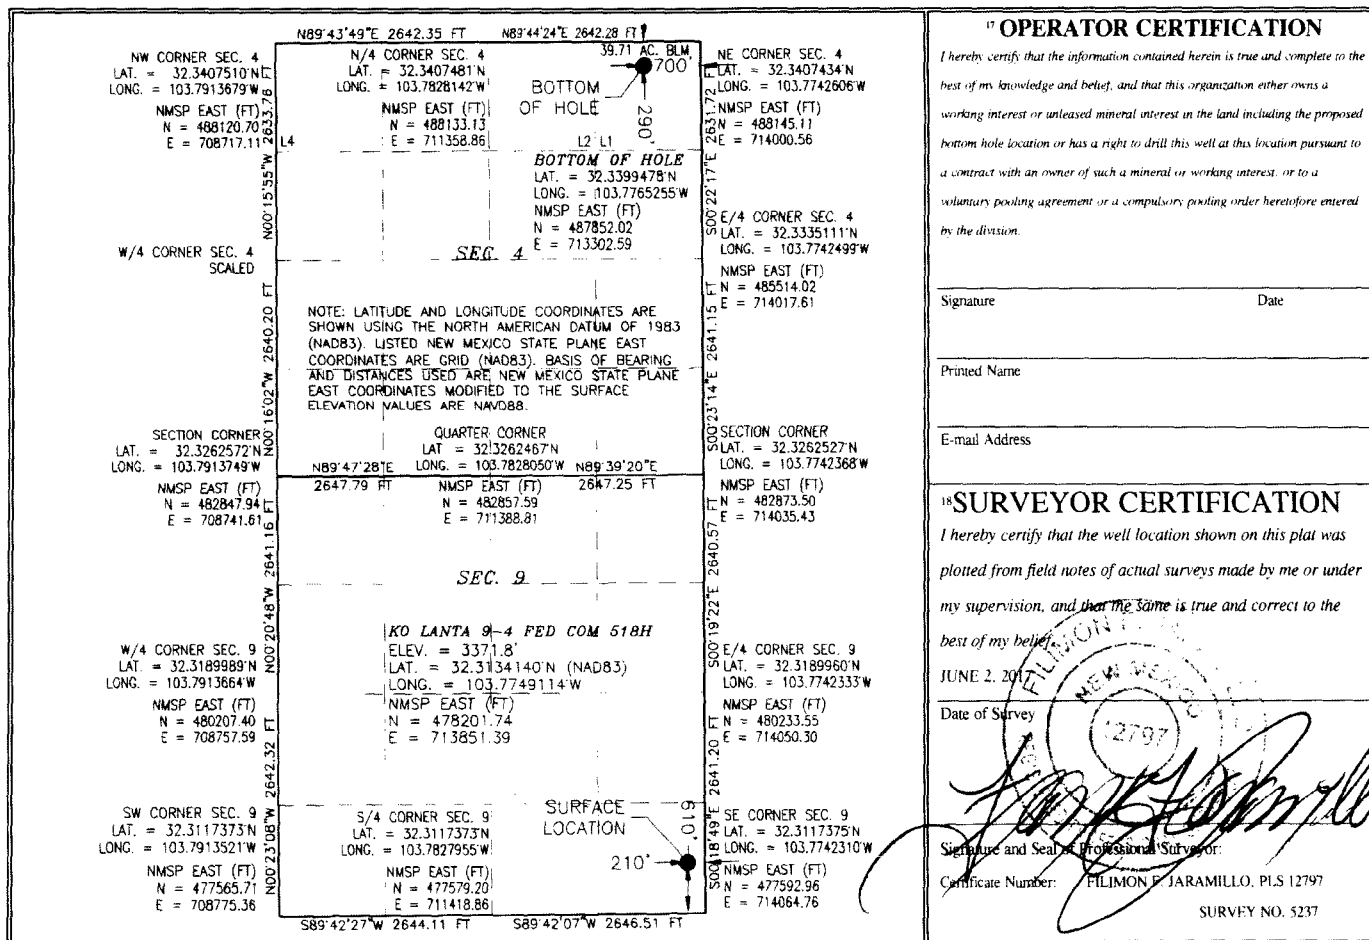 N89°43'49"E 2642.35 FT
N89°44'24"E 2642.28 FT
NW CORNER SEC. 4
LAT. = 32.3407510°N
LONG. = 103.7913679°W
NMSP EAST (FT)
N = 488120.70
E = 708717.11
N/4 CORNER SEC. 4
LAT. = 32.3407481°N
LONG. = 103.7828142°W
NMSP EAST (FT)
N = 488133.13
E = 711358.86
39.71 AC. BLM
700'
BOTTOM
OF HOLE
290'
NE CORNER SEC. 4
LAT. = 32.3407434°N
LONG. = 103.7742606°W
NMSP EAST (FT)
N = 488145.11
E = 714000.56
L4
L2
L1
BOTTOM OF HOLE
LAT. = 32.3399478°N
LONG. = 103.7765255°W
NMSP EAST (FT)
N = 487852.02
E = 713302.59
N00°15'55"W 2633.78 FT
S00°22'17"E 2631.72 FT
W/4 CORNER SEC. 4
SCALED
SEC. 4
E/4 CORNER SEC. 4
LAT. = 32.3335111°N
LONG. = 103.7742499°W
NMSP EAST (FT)
N = 485514.02
E = 714017.61
NOTE: LATITUDE AND LONGITUDE COORDINATES ARE
SHOWN USING THE NORTH AMERICAN DATUM OF 1983
(NAD83). LISTED NEW MEXICO STATE PLANE EAST
COORDINATES ARE GRID (NAD83). BASIS OF BEARING
AND DISTANCES USED ARE NEW MEXICO STATE PLANE
EAST COORDINATES MODIFIED TO THE SURFACE
ELEVATION VALUES ARE NAVD88.
N00°16'02"W 2640.20 FT
S00°23'14"E 2641.15 FT
SECTION CORNER
LAT. = 32.3262572°N
LONG. = 103.7913749°W
NMSP EAST (FT)
N = 482847.94
E = 708741.61
QUARTER CORNER
LAT = 32.3262467°N
LONG. = 103.7828050°W
NMSP EAST (FT)
N = 482857.59
E = 711388.81
N89°47'28"E
2647.79 FT
N89°39'20"E
2647.25 FT
SECTION CORNER
LAT. = 32.3262527°N
LONG. = 103.7742368°W
NMSP EAST (FT)
N = 482873.50
E = 714035.43
N00°20'48"W 2641.16 FT
S00°19'22"E 2640.57 FT
SEC. 9
KO LANTA 9-4 FED COM 518H
ELEV. = 3371.8'
LAT. = 32.3134140°N (NAD83)
LONG. = 103.7749114°W
NMSP EAST (FT)
N = 478201.74
E = 713851.39
W/4 CORNER SEC. 9
LAT. = 32.3189989°N
LONG. = 103.7913664°W
NMSP EAST (FT)
N = 480207.40
E = 708757.59
E/4 CORNER SEC. 9
LAT. = 32.3189960°N
LONG. = 103.7742333°W
NMSP EAST (FT)
N = 480233.55
E = 714050.30
N00°23'08"W 2642.32 FT
S00°18'49"E 2641.20 FT
SW CORNER SEC. 9
LAT. = 32.3117373°N
LONG. = 103.7913521°W
NMSP EAST (FT)
N = 477565.71
E = 708775.36
S/4 CORNER SEC. 9
LAT. = 32.3117373°N
LONG. = 103.7827955°W
NMSP EAST (FT)
N = 477579.20
E = 711418.86
SURFACE
LOCATION
610'
210'
SE CORNER SEC. 9
LAT. = 32.3117375°N
LONG. = 103.7742310°W
NMSP EAST (FT)
N = 477592.96
E = 714064.76
S89°42'27"W 2644.11 FT
S89°42'07"W 2646.51 FT
17 OPERATOR CERTIFICATION
I hereby certify that the information contained herein is true and complete to the
best of my knowledge and belief, and that this organization either owns a
working interest or unleased mineral interest in the land including the proposed
bottom hole location or has a right to drill this well at this location pursuant to
a contract with an owner of such a mineral or working interest, or to a
voluntary pooling agreement or a compulsory pooling order heretofore entered
by the division.
Signature Date
Printed Name
E-mail Address
18 SURVEYOR CERTIFICATION
I hereby certify that the well location shown on this plat was
plotted from field notes of actual surveys made by me or under
my supervision, and that the same is true and correct to the
best of my belief.
JUNE 2, 2017
Date of Survey
NEW MEXICO
12797
Signature and Seal of Professional Surveyor:
Certificate Number: FILIMON F. JARAMILLO, PLS 12797
SURVEY NO. 5237